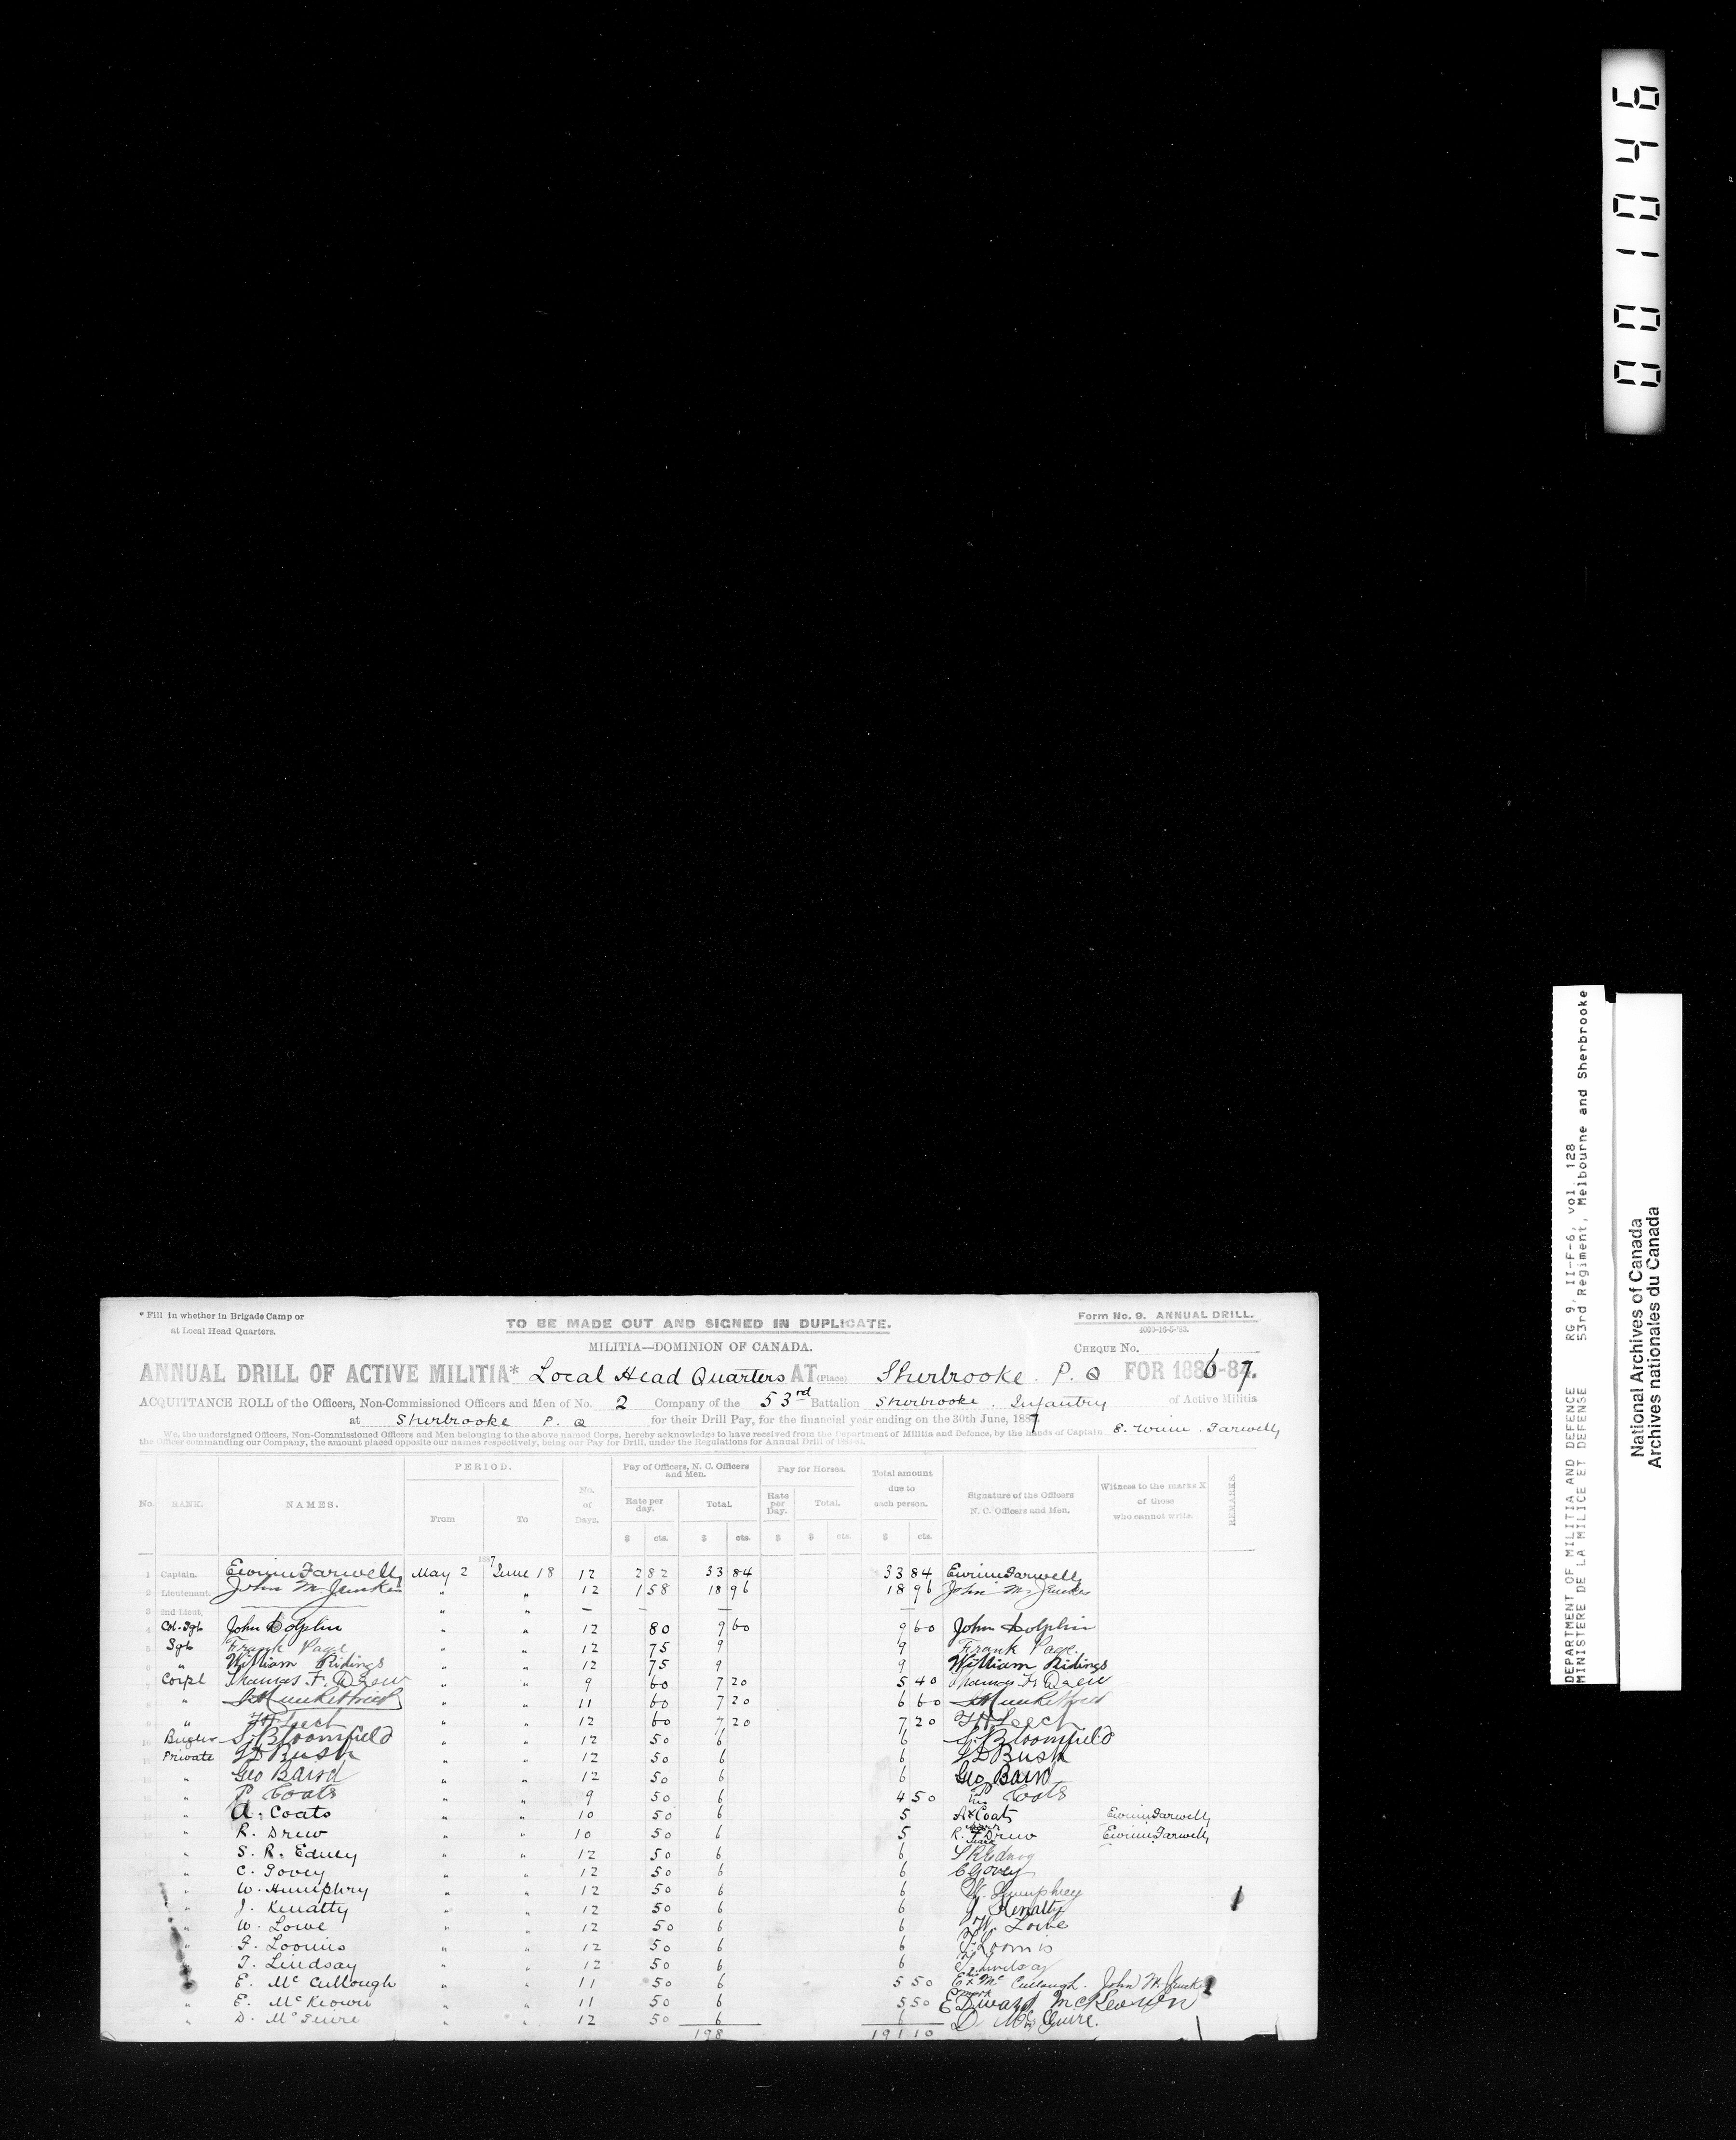 001046
DEPARTMENT OF MILITIA AND DEFENCE RG 9, II-F-6, vol. 128
MINISTERE DE LA MILICE ET DEFENSE 53rd Regiment, Melbourne and Sherbrooke
National Archives of Canada
Archives nationales du Canada
* Fill in whether in Brigade Camp or
at Local Head Quarters.
TO BE MADE OUT AND SIGNED IN DUPLICATE.
Form No. 9. ANNUAL DRILL.
MILITIA—DOMINION OF CANADA.
CHEQUE No.
ANNUAL DRILL OF ACTIVE MILITIA* Local Head Quarters AT (Place) Sherbrooke. P. Q FOR 1886-87.
ACQUITTANCE ROLL of the Officers, Non-Commissioned Officers and Men of No. 2 Company of the 53rd Battalion Sherbrooke. Infantry of Active Militia
at Sherbrooke P. Q for their Drill Pay, for the financial year ending on the 30th June, 1887
We, the undersigned Officers, Non-Commissioned Officers and Men belonging to the above named Corps, hereby acknowledge to have received from the Department of Militia and Defence, by the hands of Captain E. Winn. Farwell
the Officer commanding our Company, the amount placed opposite our names respectively, being our Pay for Drill, under the Regulations for Annual Drill of
No. RANK. NAMES. PERIOD. From To No. of Days. Pay of Officers, N. C. Officers and Men. Rate per day. Total. Pay for Horses. Rate per Day. Total. Total amount due to each person. Signature of the Officers N. C. Officers and Men. Witness to the marks X of those who cannot write. REMARKS
$ cts. $ cts. $ $ cts. $ cts.
1 Captain. Farwell May 2 1887 June 18 12 2 82 33 84 33 84 Farwell
2 Lieutenant. John M Jenkes " " 12 1 58 18 96 18 96 John M Jenkes
3 2nd Lieut. — " " — — — —
4 Col-Sgt John Dolphin " " 12 80 9 60 9 60 John Dolphin
5 Sgt Frank Page " " 12 75 9 9 Frank Page.
6 " William Ridings " " 12 75 9 9 William Ridings
7 Corpl Thomas F. Drew " " 9 60 7 20 5 40 Thomas F. Drew
" " " 11 60 7 20 6 60
9 " Leech " " 12 60 7 20 7 20 Leech
10 Bugler S. Bloomfield " " 12 50 6 6 S. Bloomfield
11 Private Bush " " 12 50 6 6 Bush
" Geo Baird " " 12 50 6 6 Geo Baird
" P Coats " " 9 50 6 4 50 P Coats
" A. Coats " " 10 50 6 5 A his X mark Coats Farwell
" R. Drew " " 10 50 6 5 R. X mark Drew Farwell
" S. R. Edney " " 12 50 6 6 S R Edney
" C. Govey " " 12 50 6 6 C Govey
" W. Humphry " " 12 50 6 6 W. Humphrey
" J. Kenatty " " 12 50 6 6 J Kenatty
" W. Lowe " " 12 50 6 6 W. Lowe
" F. Loomis " " 12 50 6 6 F. Loomis
" T. Lindsay " " 12 50 6 6 T. Lindsay
" E. McCullough " " 11 50 6 5 50 E his X mark McCullough. John M. Jenkes
" E. McKeown " " 11 50 6 5 50 Edward McKeown
" D. McGuire " " 12 50 6 6 D McGuire.
198 191 10